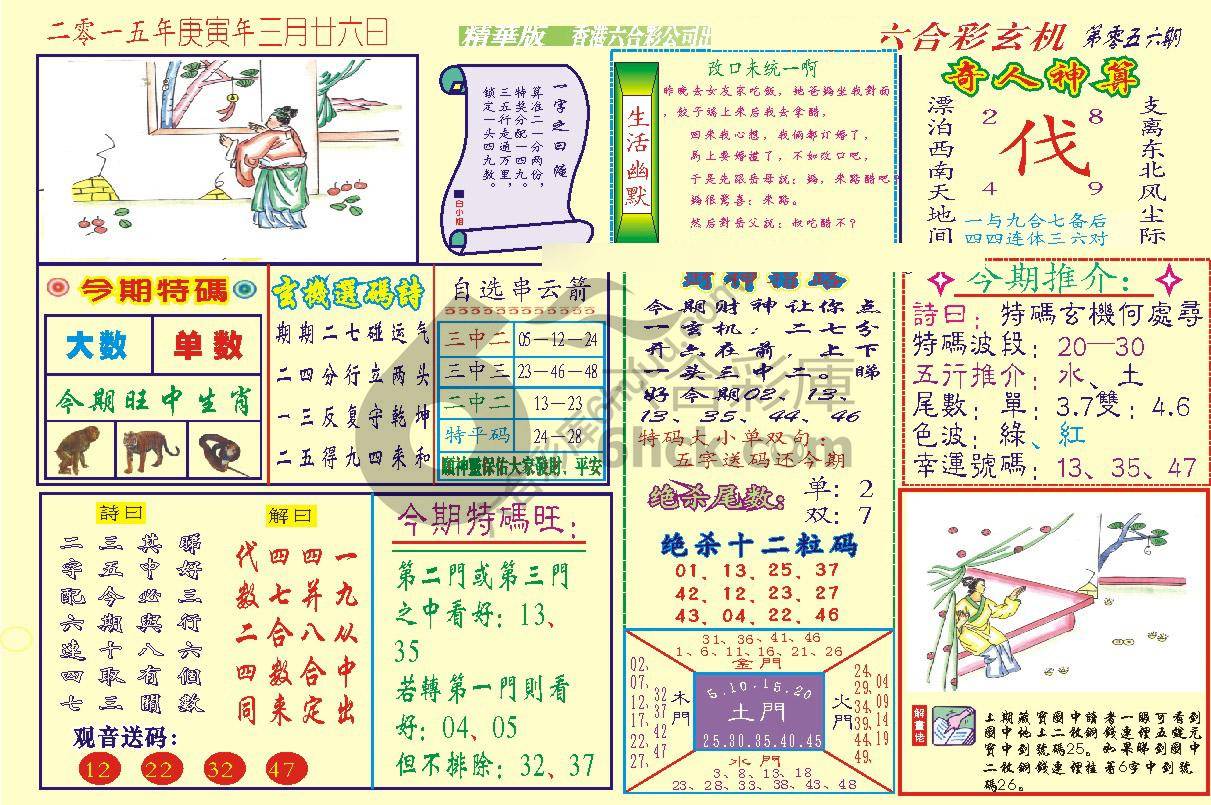 二零一五年庚寅年三月廿六日
精華版 香港六合彩公司出
六合彩玄机 第零五六期
一字之曰隨
算准二一分两份，
特奖分配一四九。
三五行走通万里，
锁定一头四九数。
白小姐
生活幽默
改口未统一啊
昨晚去女友家吃飯，她爸媽坐我對面
，餃子端上来后我去拿醋，
回来我心想，我俩都订婚了，
馬上要婚禮了，不如改口吧，
于是先跟岳母說：媽，来點醋吧？
媽很驚喜：来點。
然后對岳父說：叔吃醋不？
奇人神算
漂泊西南天地间
支离东北风尘际
2 8
伐
4 9
一与九合七备后
四四连体三六对
今期特碼
大数 单数
今期旺中生肖
玄機選碼詩
期期二七碰运气
二四分行立两头
一三反复守乾坤
二五得九四来和
自选串云箭
三中二 05—12—24
三中三 23—46—48
二中二 13—23
特平码 24—28
願神靈保佑大家發財、平安
今期财神让你点
一玄机，二七分
开六在前，上下
一头三中二。睇
好今期02、13、
13、35、44、46
特码大小单双句：
五字送码还今期
绝杀尾数：
单：2
双：7
绝杀十二粒码
01、13、25、37
42、12、23、27
43、04、22、46
今期推介：
詩曰：特碼玄機何處尋
特碼波段：20—30
五行推介：水、土
尾數：單：3.7雙：4.6
色波：綠、紅
幸運號碼：13、35、47
詩曰
二字配六连四七
三五今期十取三
其中必與八有關
睇好三行六個數
解曰
代数二四同
四七合数来
四并八合定
一九从中出
观音送码：
12 22 32 47
今期特碼旺：
第二門或第三門
之中看好：13、
35
若轉第一門則看
好：04、05
但不排除：32、37
31、36、41、46
1、6、11、16、21、26
金門
02、
07、
12、
17、
22、
27、
32
37
42
47
木門
5.10.15.20
土門
25.30.35.40.45
火門
24、
29、
34、
39、
44、
49、
04
09
14
19
水門
3、8、13、18
23、28、33、38、43、48
解畫佬
上期藏寶圖中讀者一眼可看到
圖中地上二枚銅錢連裡五錠元
寶中到號碼25。如果睇到圖中
二枚銅錢連裡柱着6字中到號
碼26。
六合彩庫
6hck.com